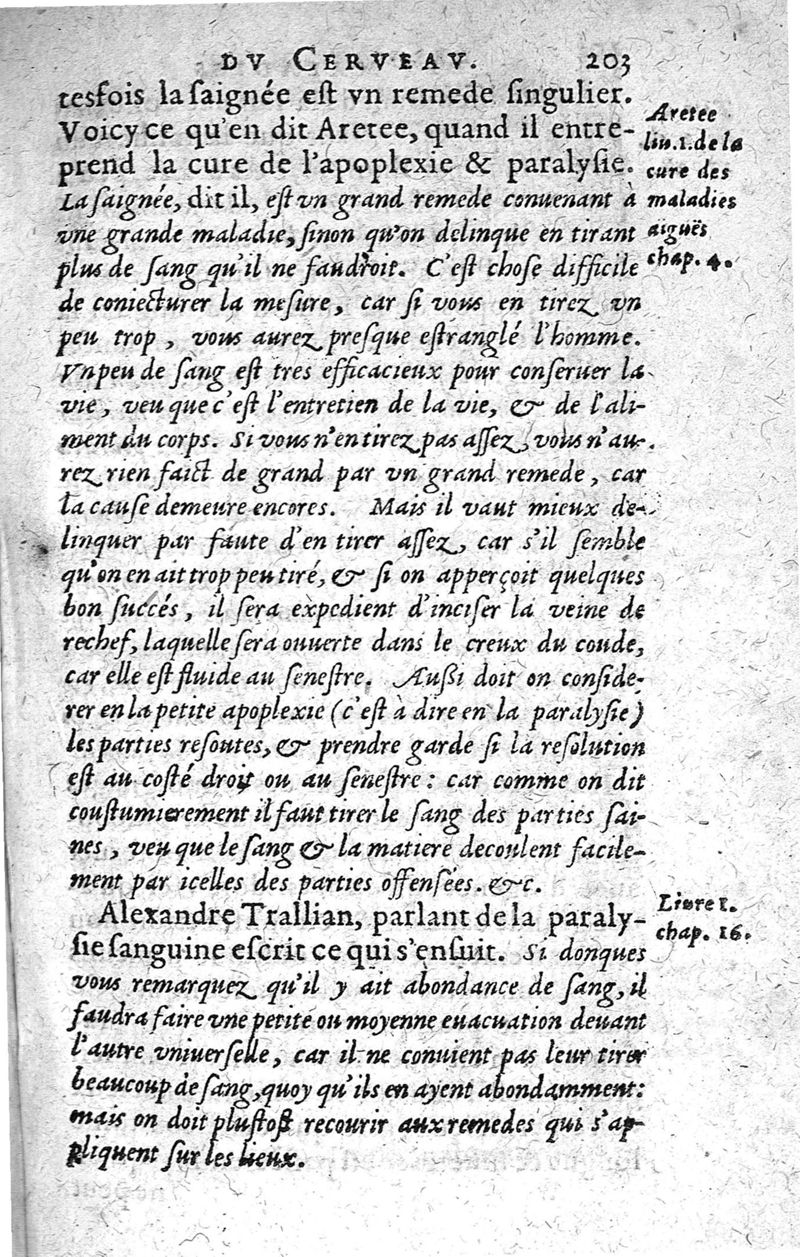 DV CERVEAV. 203
tesfois la saignée est vn remede singulier.
Voicy ce qu'en dit Aretee, quand il entre-
prend la cure de l'apoplexie & paralysie.
La saignée, dit il, est vn grand remede conuenant à
vne grande maladie, sinon qu'on delinque en tirant
plus de sang qu'il ne faudroit. C'est chose difficile
de coniecturer la mesure, car si vous en tirez vn
peu trop, vous aurez presque estranglé l'homme.
Vn peu de sang est tres efficacieux pour conseruer la
vie, veu que c'est l'entretien de la vie, & de l'ali-
ment du corps. Si vous n'en tirez pas assez, vous n'au-
rez rien faict de grand par vn grand remede, car
la cause demeure encores. Mais il vaut mieux de-
linquer par faute d'en tirer assez, car s'il semble
qu'on en ait trop peu tiré, & si on apperçoit quelques
bon succés, il sera expedient d'inciser la veine de
rechef, laquelle sera ouuerte dans le creux du coude,
car elle est fluide au senestre. Aussi doit on conside-
rer en la petite apoplexie (c'est à dire en la paralysie)
les parties resoutes, & prendre garde si la resolution
est au costé droit ou au senestre: car comme on dit
coustumierement il faut tirer le sang des parties sai-
nes, veu que le sang & la matiere decoulent facile-
ment par icelles des parties offensées. &c.
Alexandre Trallian, parlant de la paraly-
sie sanguine escrit ce qui s'ensuit. Si donques
vous remarquez qu'il y ait abondance de sang, il
faudra faire vne petite ou moyenne euacuation deuant
l'autre vniuerselle, car il ne conuient pas leur tirer
beaucoup de sang, quoy qu'ils en ayent abondamment:
mais on doit plustost recourir aux remedes qui s'ap-
pliquent sur les lieux.
Aretee
liu.1.de la
cure des
maladies
aiguës
chap. 4.
Liure 1.
chap. 16.